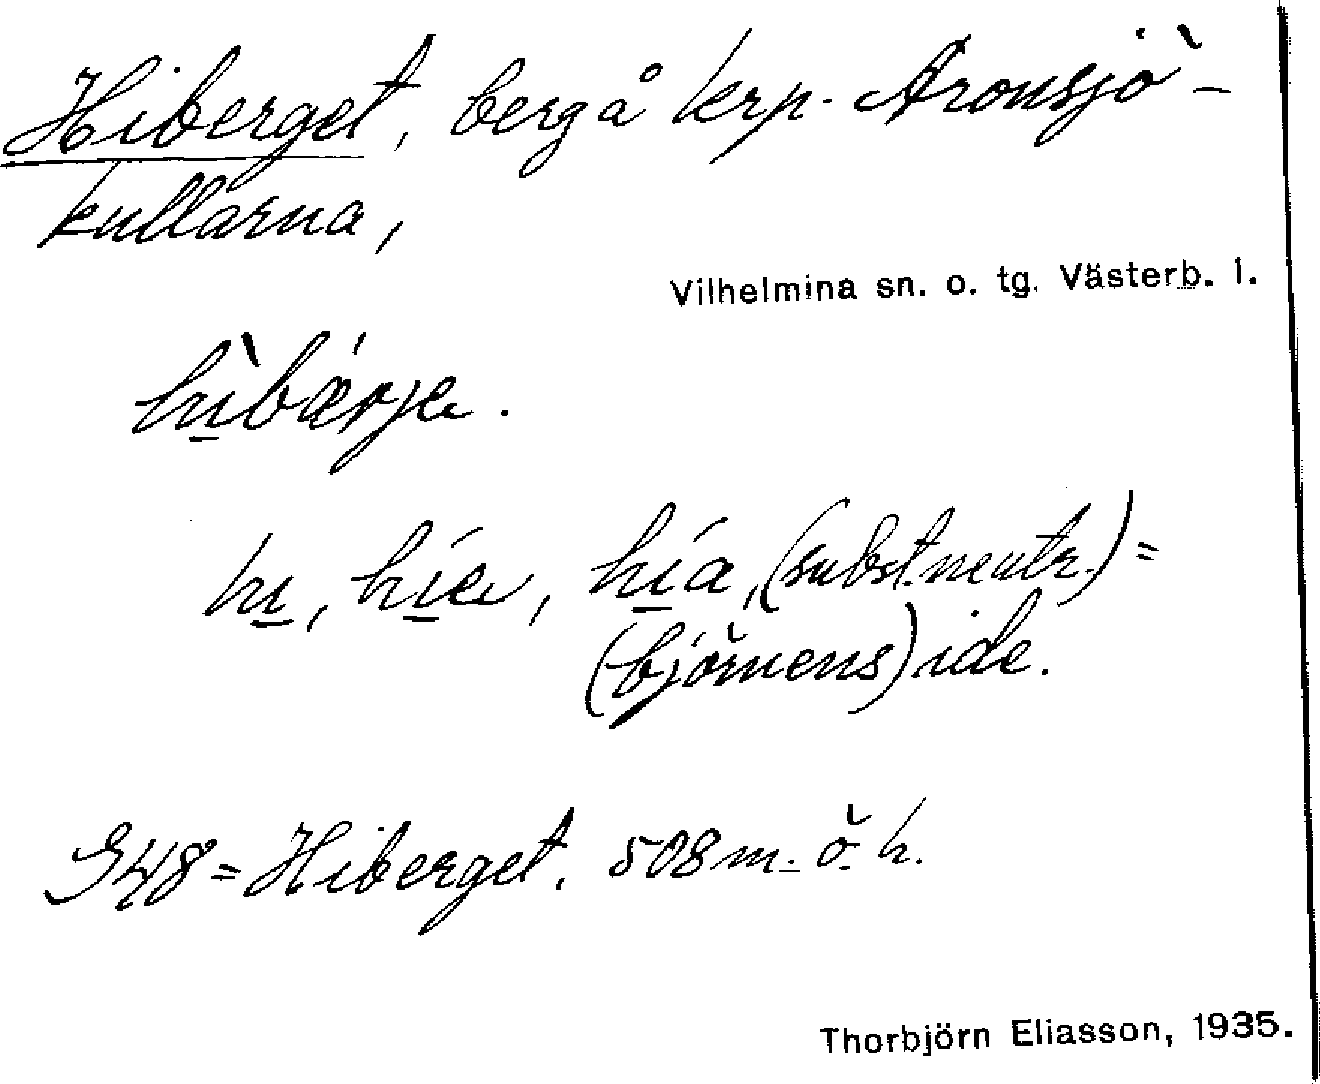 Hiberget, berg å krp. Aronsjö-
kullarna,
Vilhelmina sn. o. tg. Västerb. l.
hìbærje.
hi, híe, hía, (subst. neutr.) =
(björnens) ide.
G48 = Hiberget. 508 m. ö. h.
Thorbjörn Eliasson, 1935.